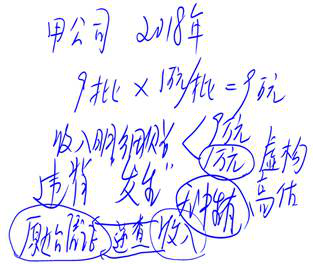 甲公司 2018年
9批 × 1万/批 = 9万
收入明细账 9万
1万 虚构
违背 发生 高估
原始凭证 逆查 收入